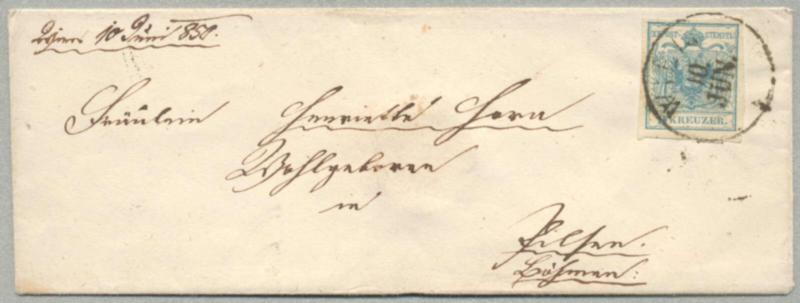 Wien 10 Juni 850.
K.K.POST-STEMPEL
KREUZER.
WIEN
10
JUN.
Fräulein Henriette Horn
Wohlgeboren
in
Pilsen.
Böhmen: